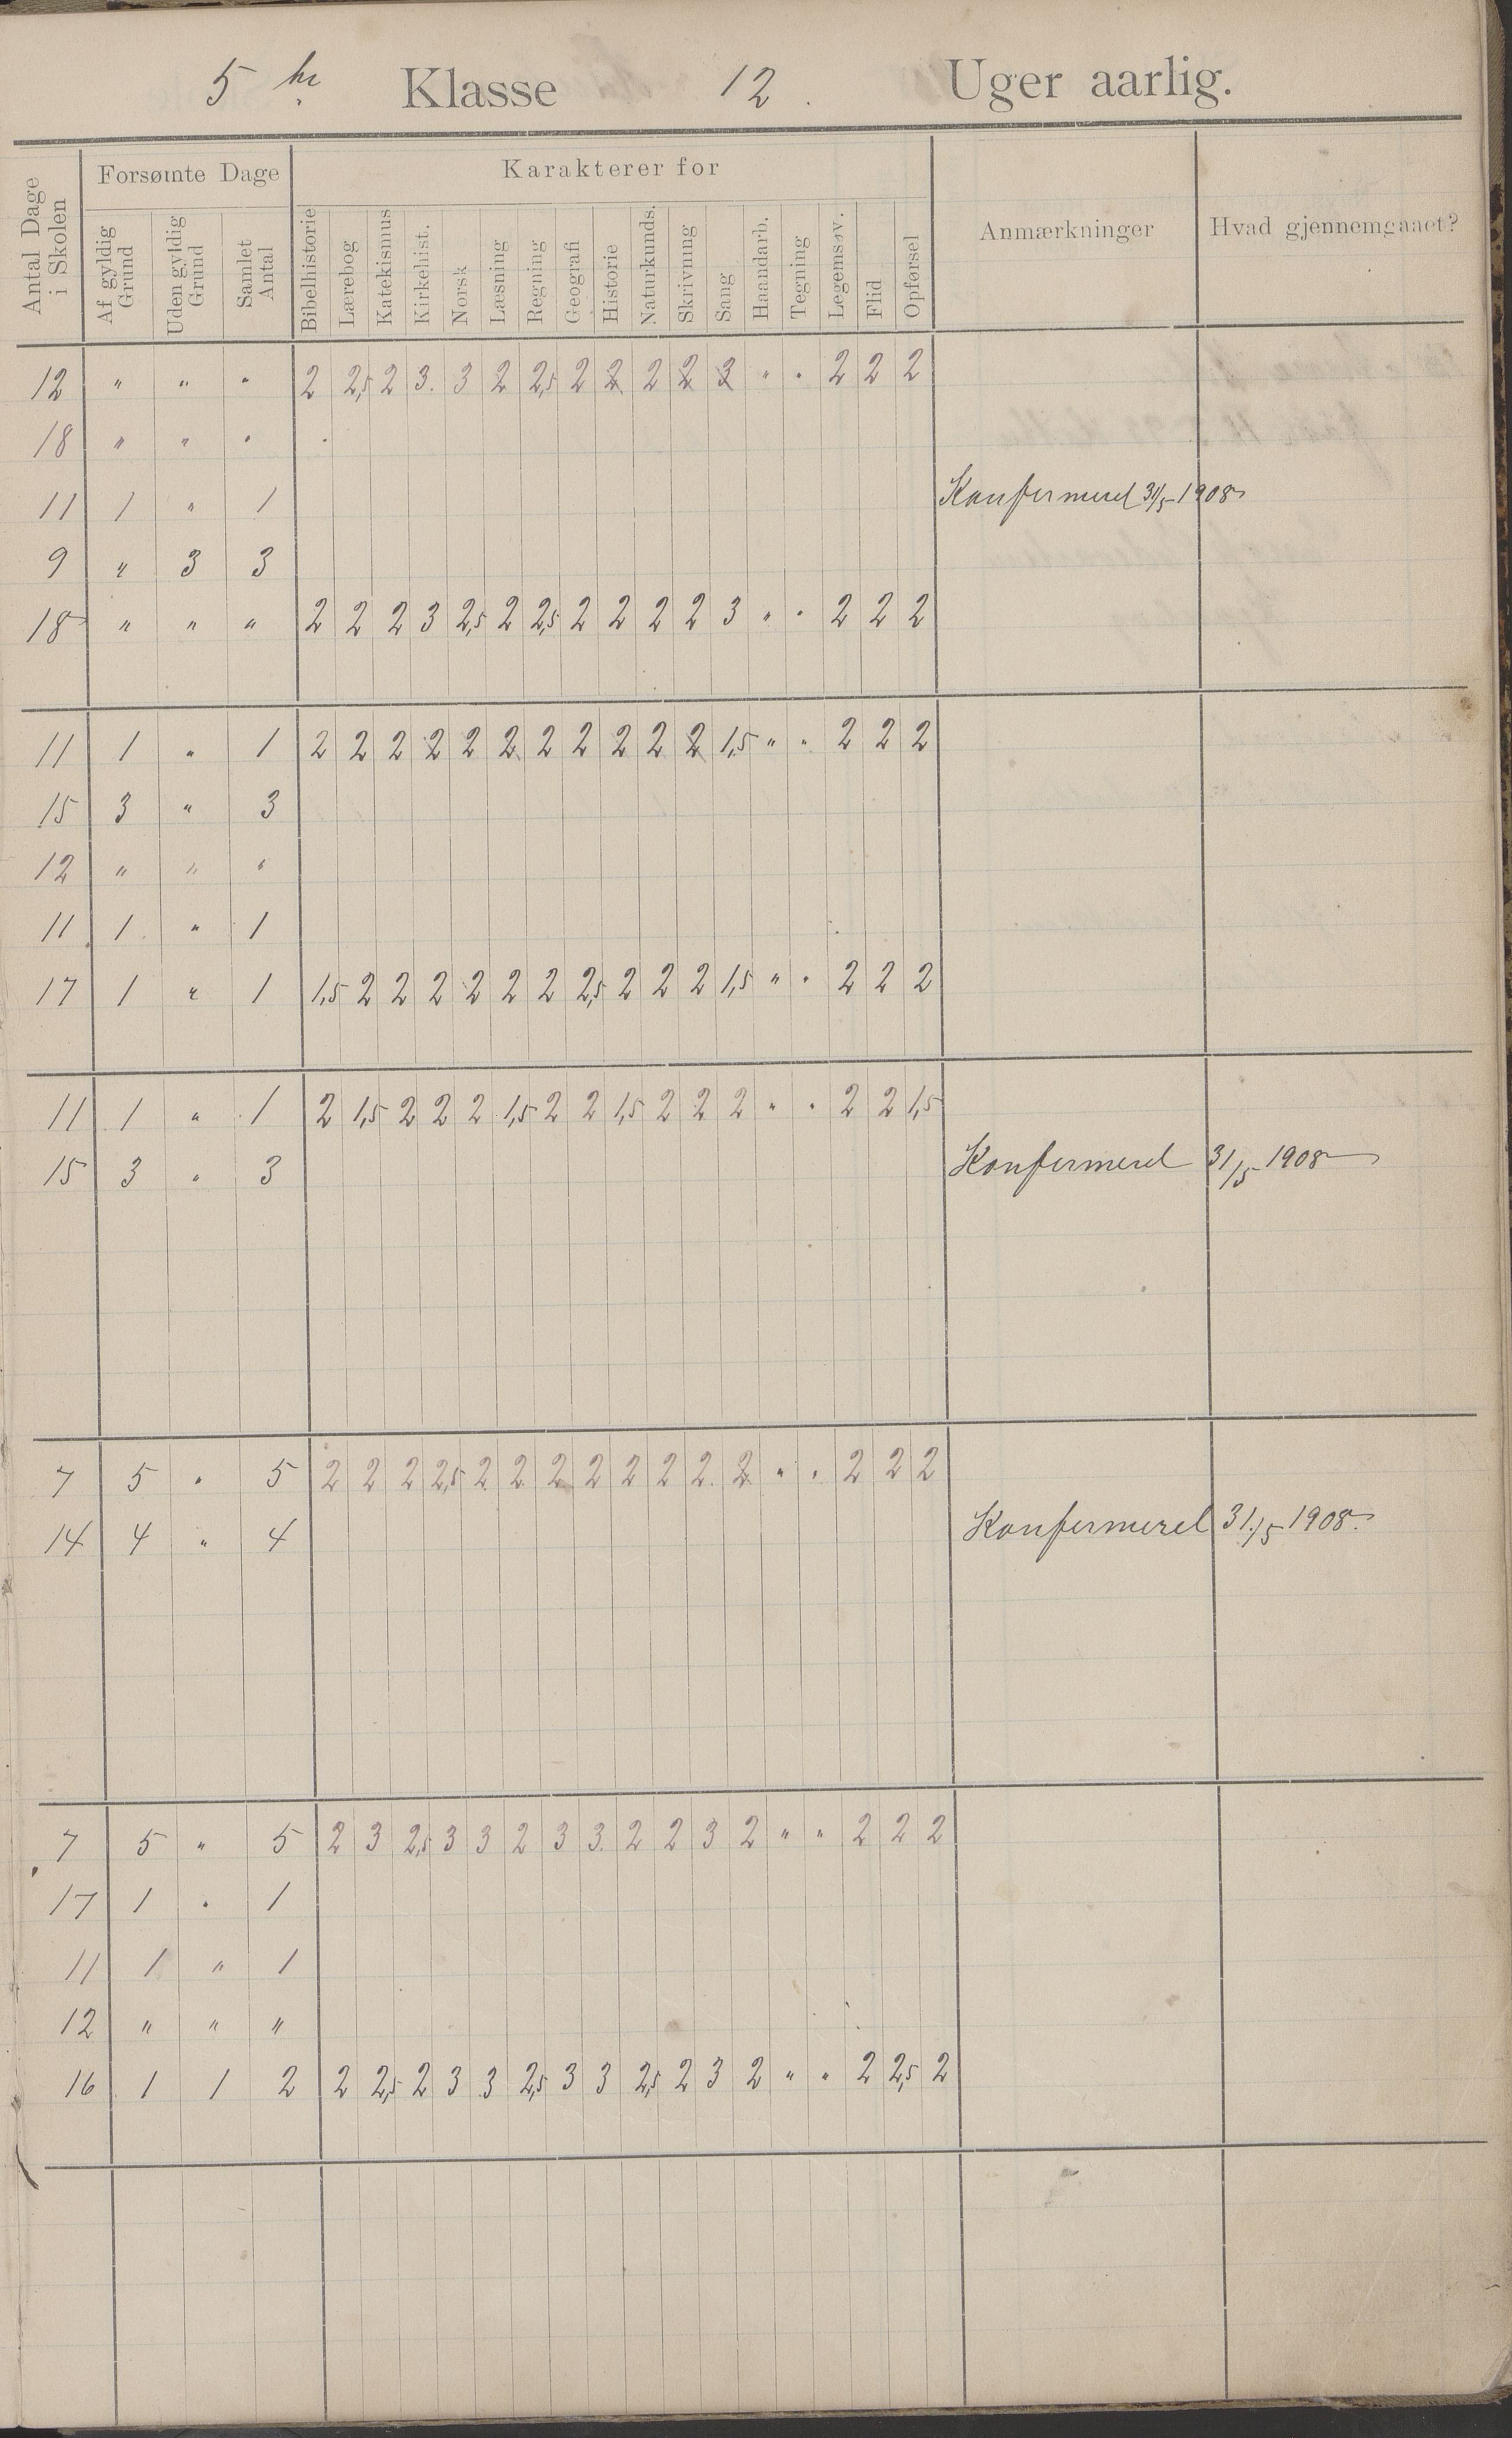 5 te Klasse 12. Uger aarlig.
Antal Dage i Skolen
Forsømte Dage
Karakterer for
Anmærkninger
Hvad gjennemgaaet?
Af gyldig Grund
Uden gyldig Grund
Samlet Antal
Bibelhistorie
Lærebog
Katekismus
Kirkehist.
Norsk
Læsning
Regning
Geografi
Historie
Naturkunds.
Skrivning
Sang
Haandarb.
Tegning
Legemsøv.
Flid
Opførsel
12 " " " 2 2,5 2 3. 3 2 2,5 2 2 2 2 3 " " 2 2 2
18 " " "
11 1 " 1 Konfirmeret 31/5 1908
9 " 3 3
18 " " " 2 2 2 3 2,5 2 2,5 2 2 2 2 3 " " 2 2 2
11 1 " 1 2 2 2 2 2 2 2 2 2 2 2 1,5 " " 2 2 2
15 3 " 3
12 " " "
11 1 " 1
17 1 " 1 1,5 2 2 2 2 2 2 2,5 2 2 2 1,5 " " 2 2 2
11 1 " 1 2 1,5 2 2 2 1,5 2 2 1,5 2 2 2 " " 2 2 1,5
15 3 " 3 Konfirmeret 31/5 1908
7 5 " 5 2 2 2 2,5 2 2 2 2 2 2 2 2 " " 2 2 2
14 4 " 4 Konfirmeret 31/5 1908.
7 5 " 5 2 3 2,5 3 3 2 3 3. 2 2 3 2 " " 2 2 2
17 1 " 1
11 1 " 1
12 " " "
16 1 1 2 2 2,5 2 3 3 2,5 3 3 2,5 2 3 2 " " 2 2,5 2